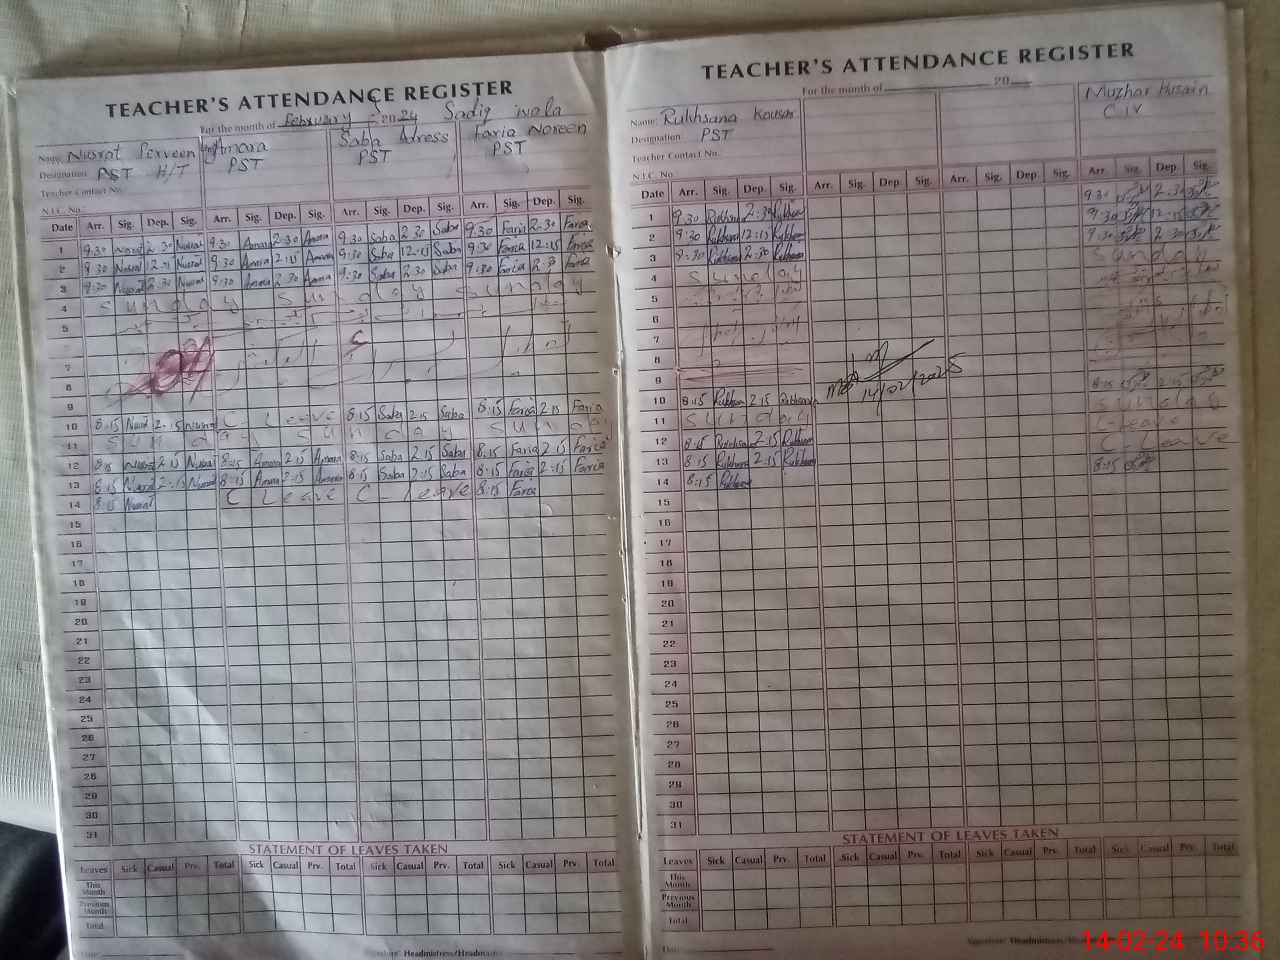 TEACHER'S ATTENDANCE REGISTER
For the month of February 2024 Sadiq wala
Name: Nusrat Perveen Amara Saba Adress Faria Noreen
Designation: PST H/T PST PST PST
Teacher Contact No.
N.I.C. No.
Date Arr. Sig. Dep. Sig. Arr. Sig. Dep. Sig. Arr. Sig. Dep. Sig. Arr. Sig. Dep. Sig.
1 9.30 Nusrat 2.30 Nusrat 9.30 Amara 2.30 Amara 9.30 Saba 2.30 Saba 9.30 Faria 2.30 Faria
2 9.30 Nusrat 12.15 Nusrat 9.30 Amara Amara 9.30 Saba 12.15 Saba 9.30 Faria 12.15 Faria
3 9.30 Nusrat 2.30 Nusrat 9.30 Amara 2.30 Amara 9.30 Saba 2.30 Saba 9.30 Faria 2.30 Faria
4 Sunday Sunday Sunday
5
6
7
8
9
10 8:15 Nusrat 2.15 Nusrat C Leave 8:15 Saba 2:15 Saba 8:15 Faria 2:15 Faria
11 Sunday Sunday Sunday
12 8:15 Nusrat 2:15 Nusrat 8:15 Amara 2:15 Amara 8:15 Saba 2:15 Saba 8:15 Faria 2:15 Faria
13 8:15 Nusrat 2:15 Nusrat 8:15 Amara 2:15 Amara 8:15 Saba 2:15 Saba 8:15 Faria 2:15 Faria
14 8:15 Nusrat C Leave C Leave 8:15 Faria
15
16
17
18
19
20
21
22
23
24
25
26
27
28
29
30
31
STATEMENT OF LEAVES TAKEN
Leaves Sick Casual Prv. Total Sick Casual Prv. Total Sick Casual Prv. Total Sick Casual Prv. Total
This Month
Previous Month
Total
Signature Headmistress/Headmaster
TEACHER'S ATTENDANCE REGISTER
For the month of 20
Name: Rukhsana Kousar Muzhar Husain
Designation: PST C iv
Teacher Contact No.
N.I.C. No.
Date Arr. Sig. Dep. Sig. Arr. Sig. Dep. Sig. Arr. Sig. Dep. Sig. Arr. Sig. Dep. Sig.
1 9.30 Rukhsana 2:30 Rukhsana 9.30 2.30
2 9:30 Rukhsana 12:15 Rukhsana 9.30 12.15
3 9:30 Rukhsana 2:30 Rukhsana 9.30 2.30
4 Sunday Sunday
5
6
7
8
9
14/02/2025
10 8:15 Rukhsana 2:15 Rukhsana 8:15 2:15
11 Sunday Sunday
12 8:15 Rukhsana 2:15 Rukhsana C-Leave
13 8:15 Rukhsana 2:15 Rukhsana C Leave
14 8:15 Rukhsana 8:15
15
16
17
18
19
20
21
22
23
24
25
26
27
28
29
30
31
STATEMENT OF LEAVES TAKEN
Leaves Sick Casual Prv. Total Sick Casual Prv. Total Sick Casual Prv. Total Sick Casual Prv. Total
This Month
Previous Month
Total
Date
Signature Headmistress/
14-02-24 10:36